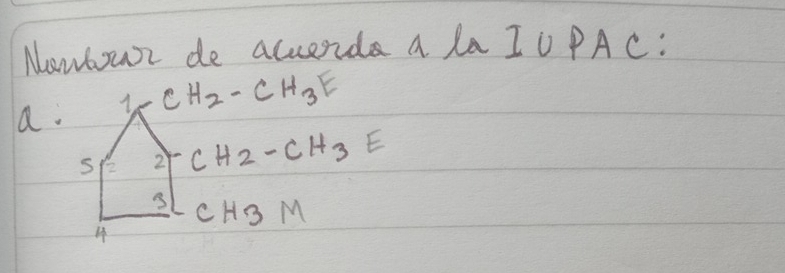 Nombrar de acuerdo a la IUPAC:
a.
1 CH2-CH3 E
5 2 CH2-CH3 E
3 CH3 M
4